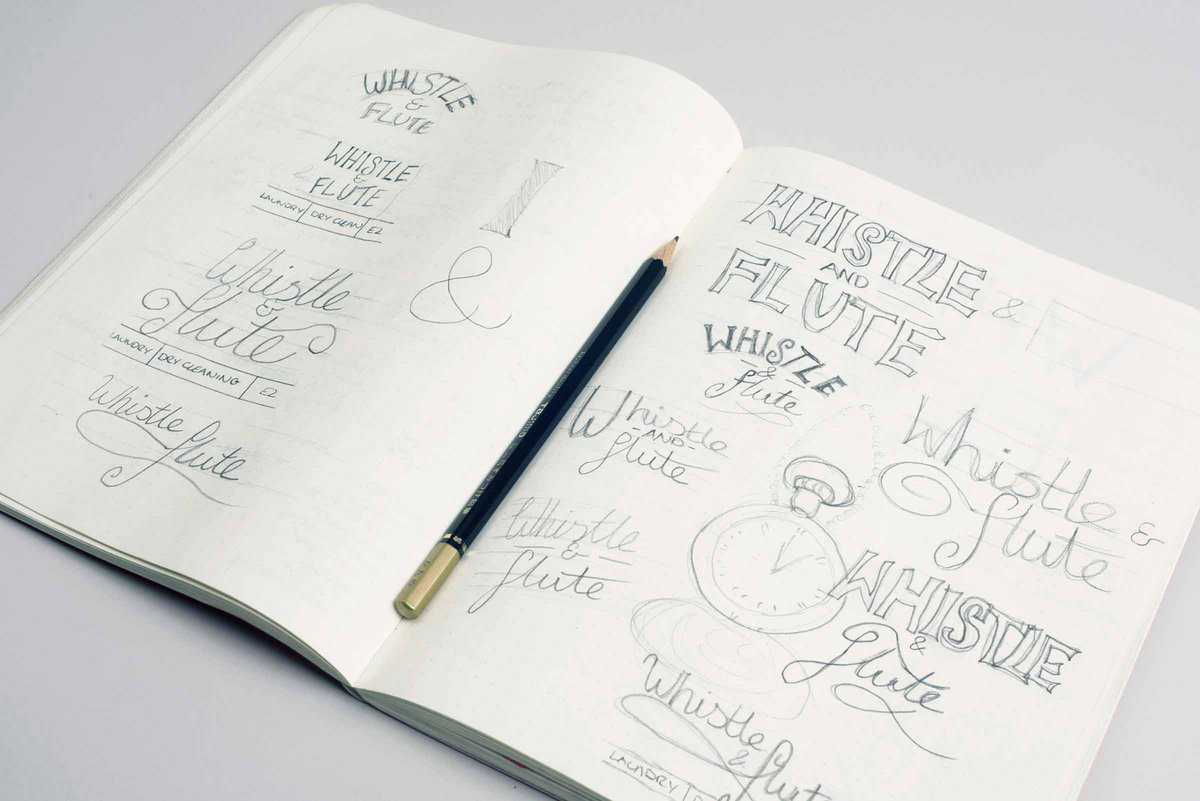 WHISTLE
&
FLUTE
WHISTLE
&
FLUTE
LAUNDRY DRY CLEAN E2
Whistle
&
flute
LAUNDRY DRY CLEANING E2
Whistle flute
&
WHISTLE
AND
FLUTE
&
W
WHISTLE
&
flute
Whistle
-AND-
flute
Whistle
&
flute
Whistle &
flute
WHISTLE
&
flute
Whistle
&
flute
LAUNDRY